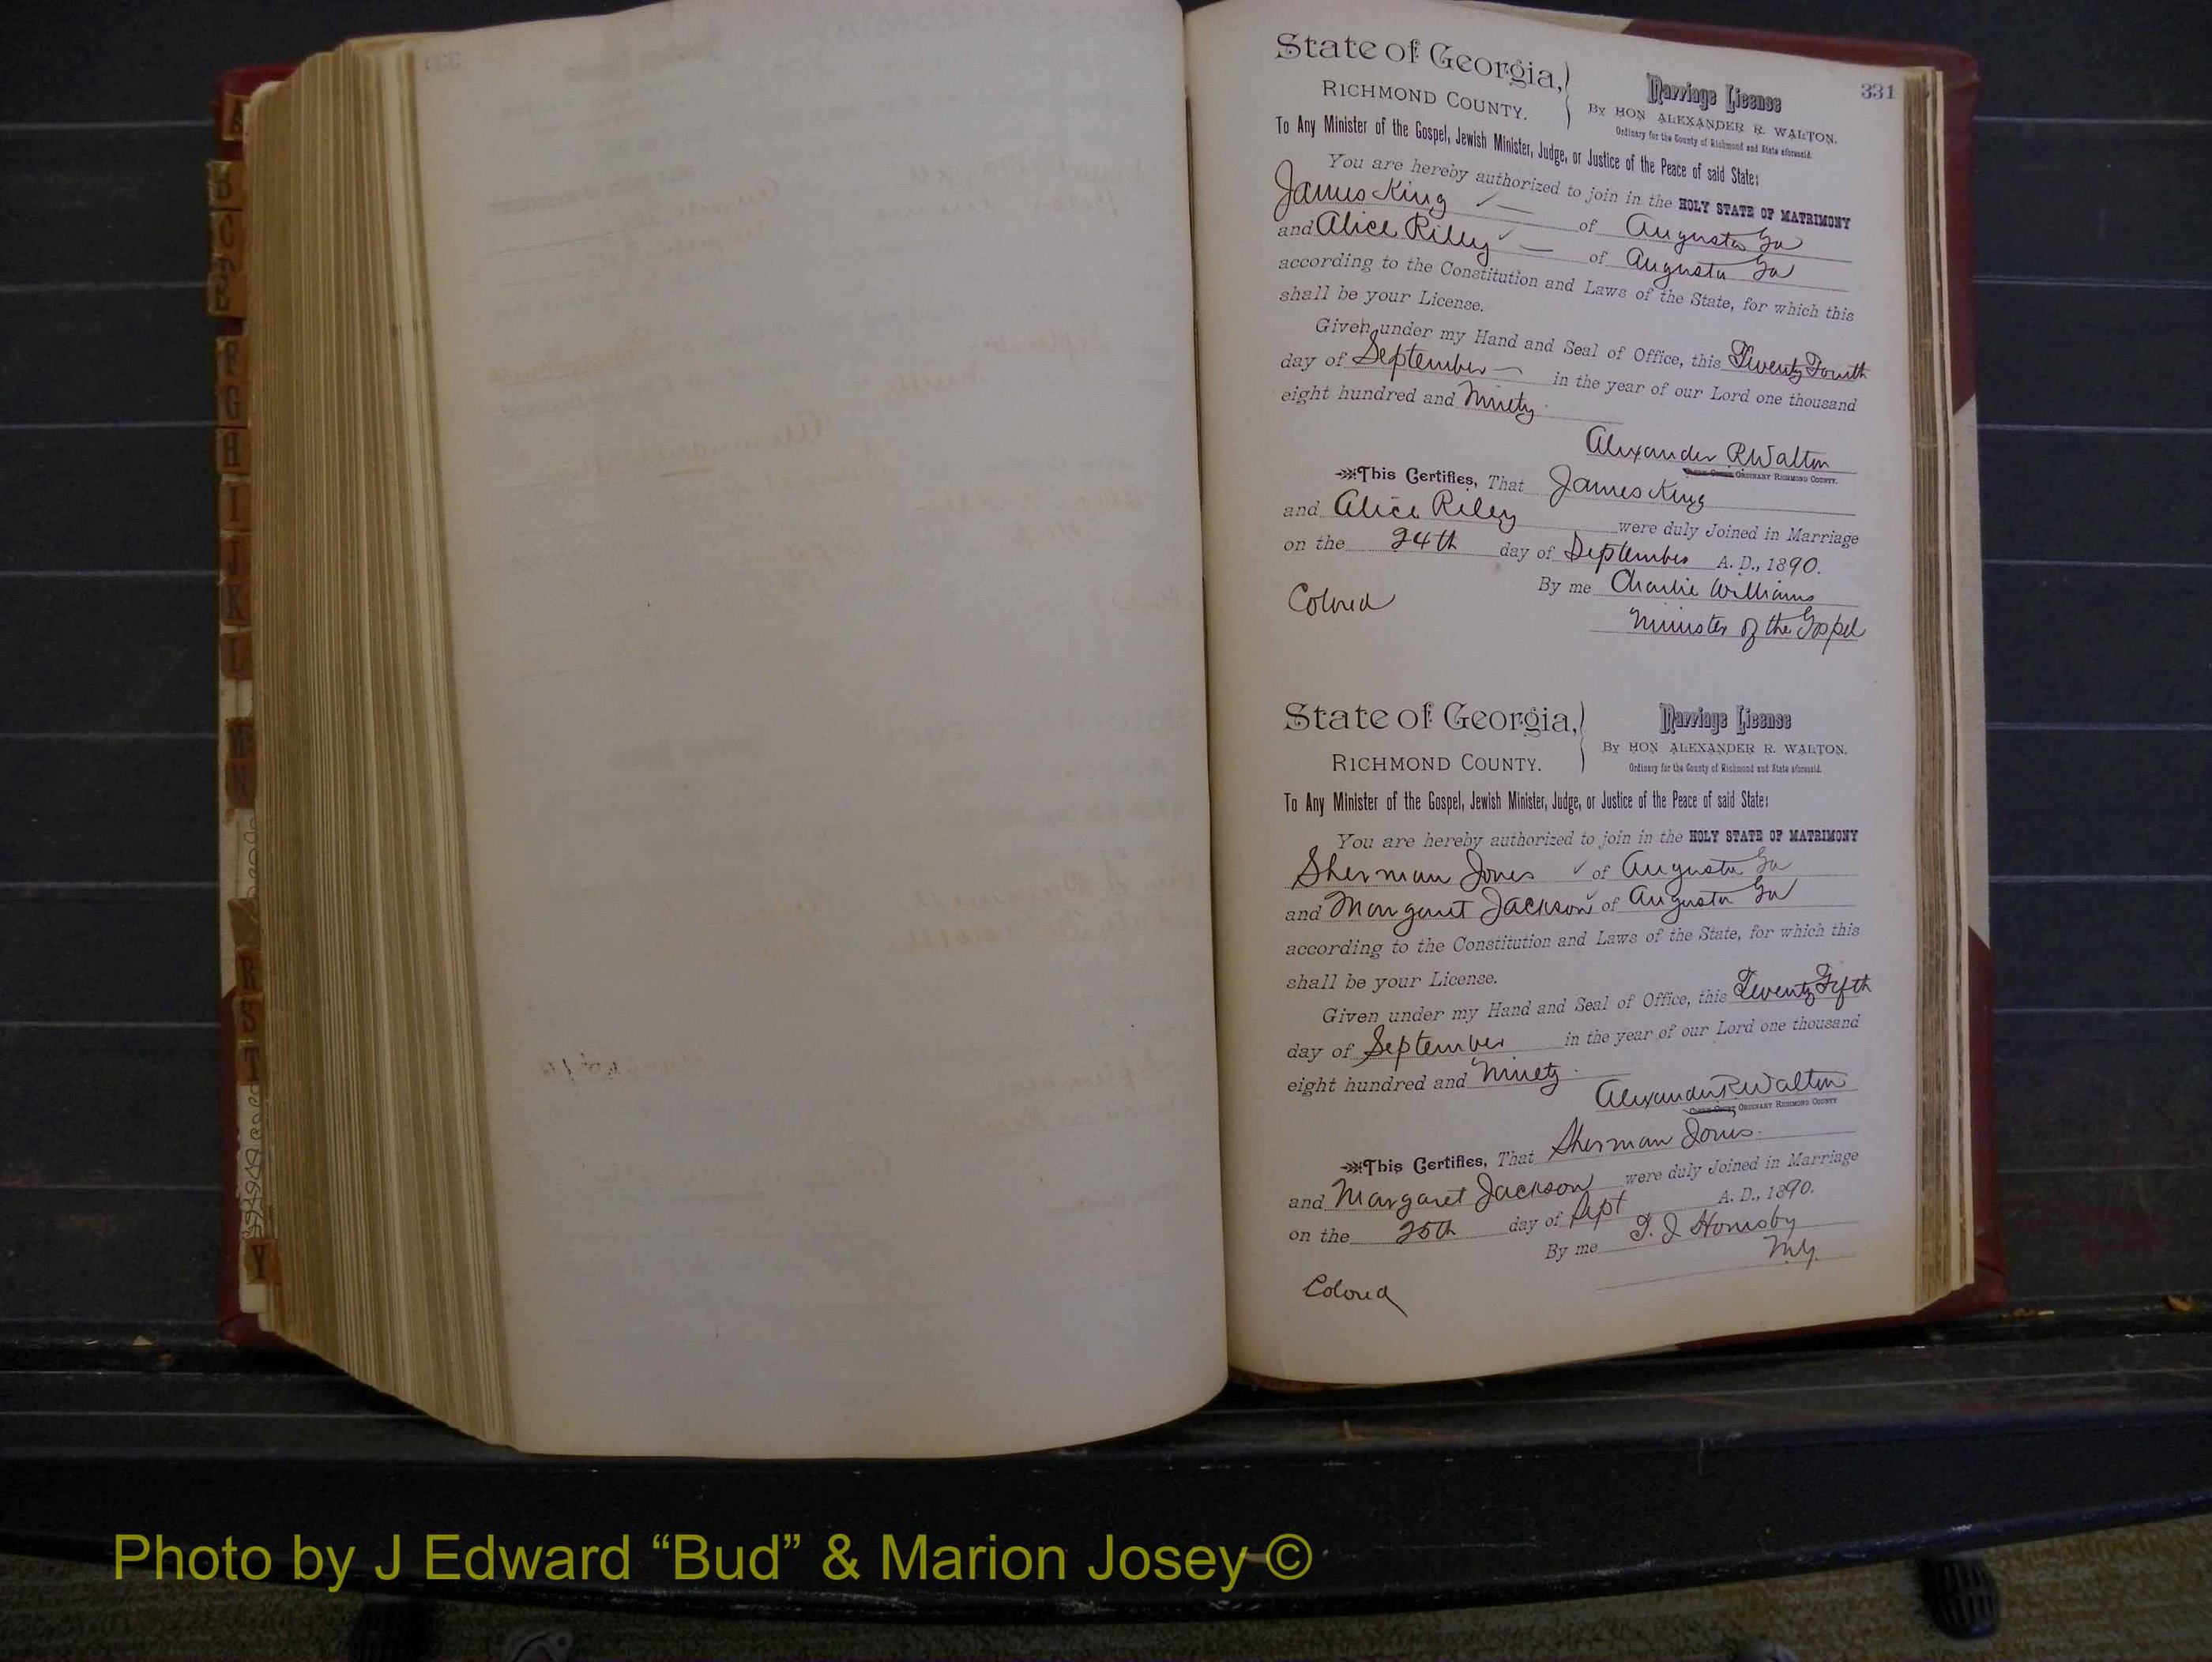 331
State of Georgia,
RICHMOND COUNTY.
Marriage License
By HON ALEXANDER R. WALTON.
Ordinary for the County of Richmond and State aforesaid.
To Any Minister of the Gospel, Jewish Minister, Judge, or Justice of the Peace of said State:
You are hereby authorized to join in the HOLY STATE OF MATRIMONY
James King of Augusta Ga
and Alice Riley of Augusta Ga
according to the Constitution and Laws of the State, for which this
shall be your License.
Given under my Hand and Seal of Office, this Twenty Fourth
day of September in the year of our Lord one thousand
eight hundred and Ninety
Alexander R Walton
ORDINARY RICHMOND COUNTY.
This Certifies, That James King
and Alice Riley were duly Joined in Marriage
on the 24th day of September A. D., 1890.
By me Charlie Williams
Colored
Minister of the Gospel
State of Georgia,
RICHMOND COUNTY.
Marriage License
By HON ALEXANDER R. WALTON.
Ordinary for the County of Richmond and State aforesaid.
To Any Minister of the Gospel, Jewish Minister, Judge, or Justice of the Peace of said State:
You are hereby authorized to join in the HOLY STATE OF MATRIMONY
Sherman Jones of Augusta Ga
and Margaret Jackson of Augusta Ga
according to the Constitution and Laws of the State, for which this
shall be your License.
Given under my Hand and Seal of Office, this Twenty Fifth
day of September in the year of our Lord one thousand
eight hundred and Ninety
Alexander R Walton
ORDINARY RICHMOND COUNTY
This Certifies, That Sherman Jones
and Margaret Jackson were duly Joined in Marriage
on the 25th day of Sept A. D., 1890.
By me T. J Hornsby
M.G.
Colored
A
B
C
F
G
H
I
J
K
L
N
R
S
T
Y
Photo by J Edward “Bud” & Marion Josey ©